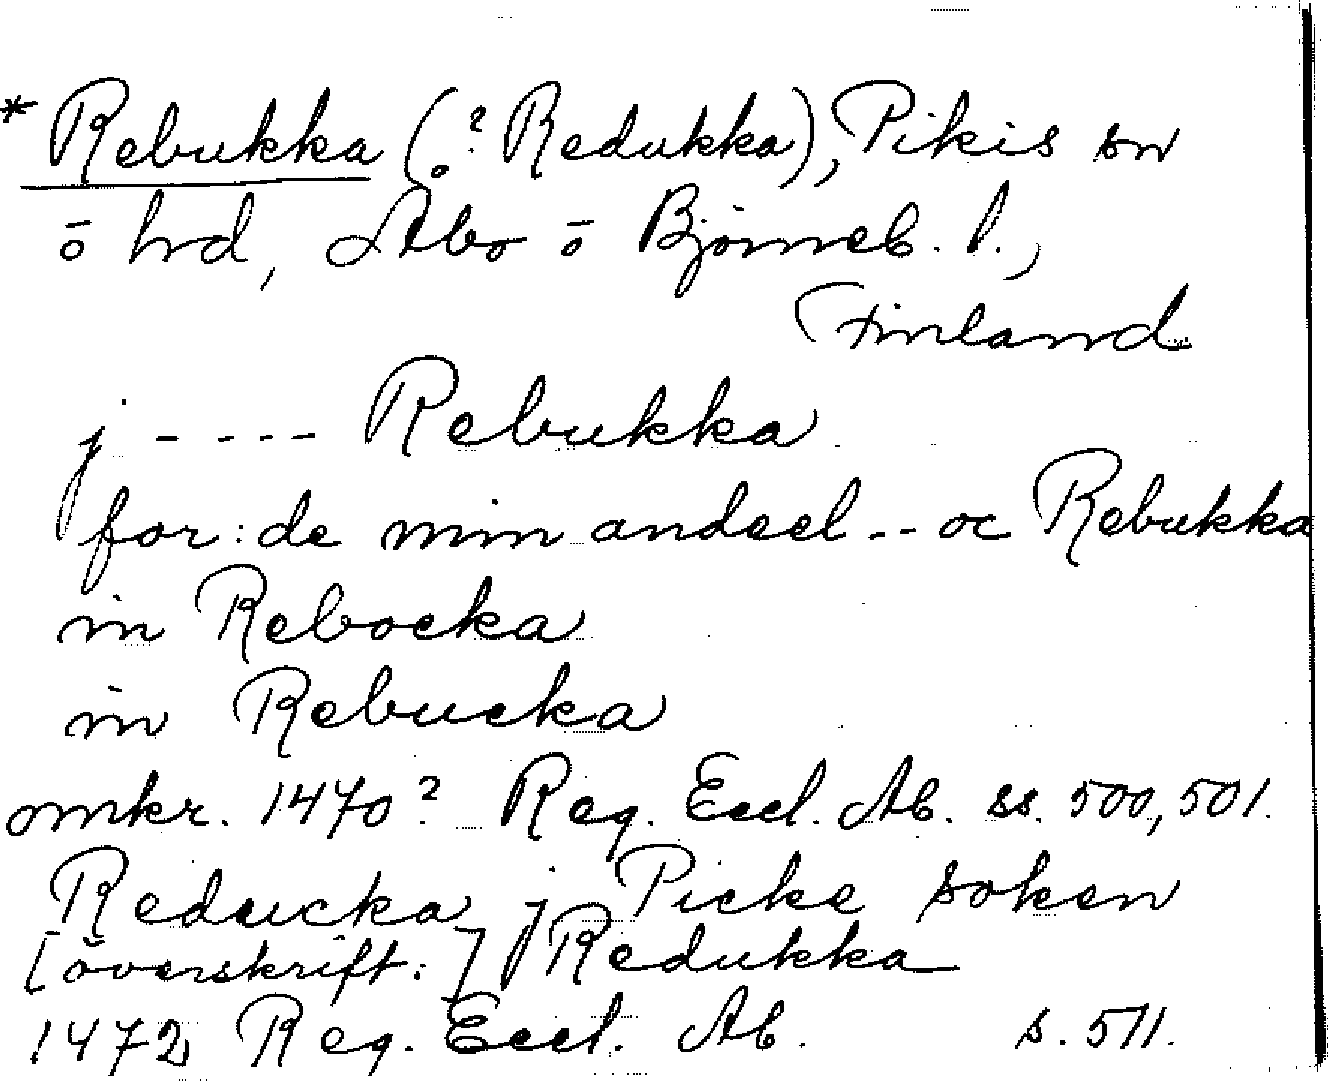 * Rebukka (? Redukka), Pikis sn
ō hd, Åbo ō Björneb. l.,
Finland
j - - - - Rebukka
for: de min andeel - - oc Rebukka
in Rebocka
in Rebucka
omkr. 1470? Reg. Eccl. Ab. ss. 500, 501.
Reducka j Picke soken
[överskrift:] Redukka
1472 Reg. Eccl. Ab. s. 511.